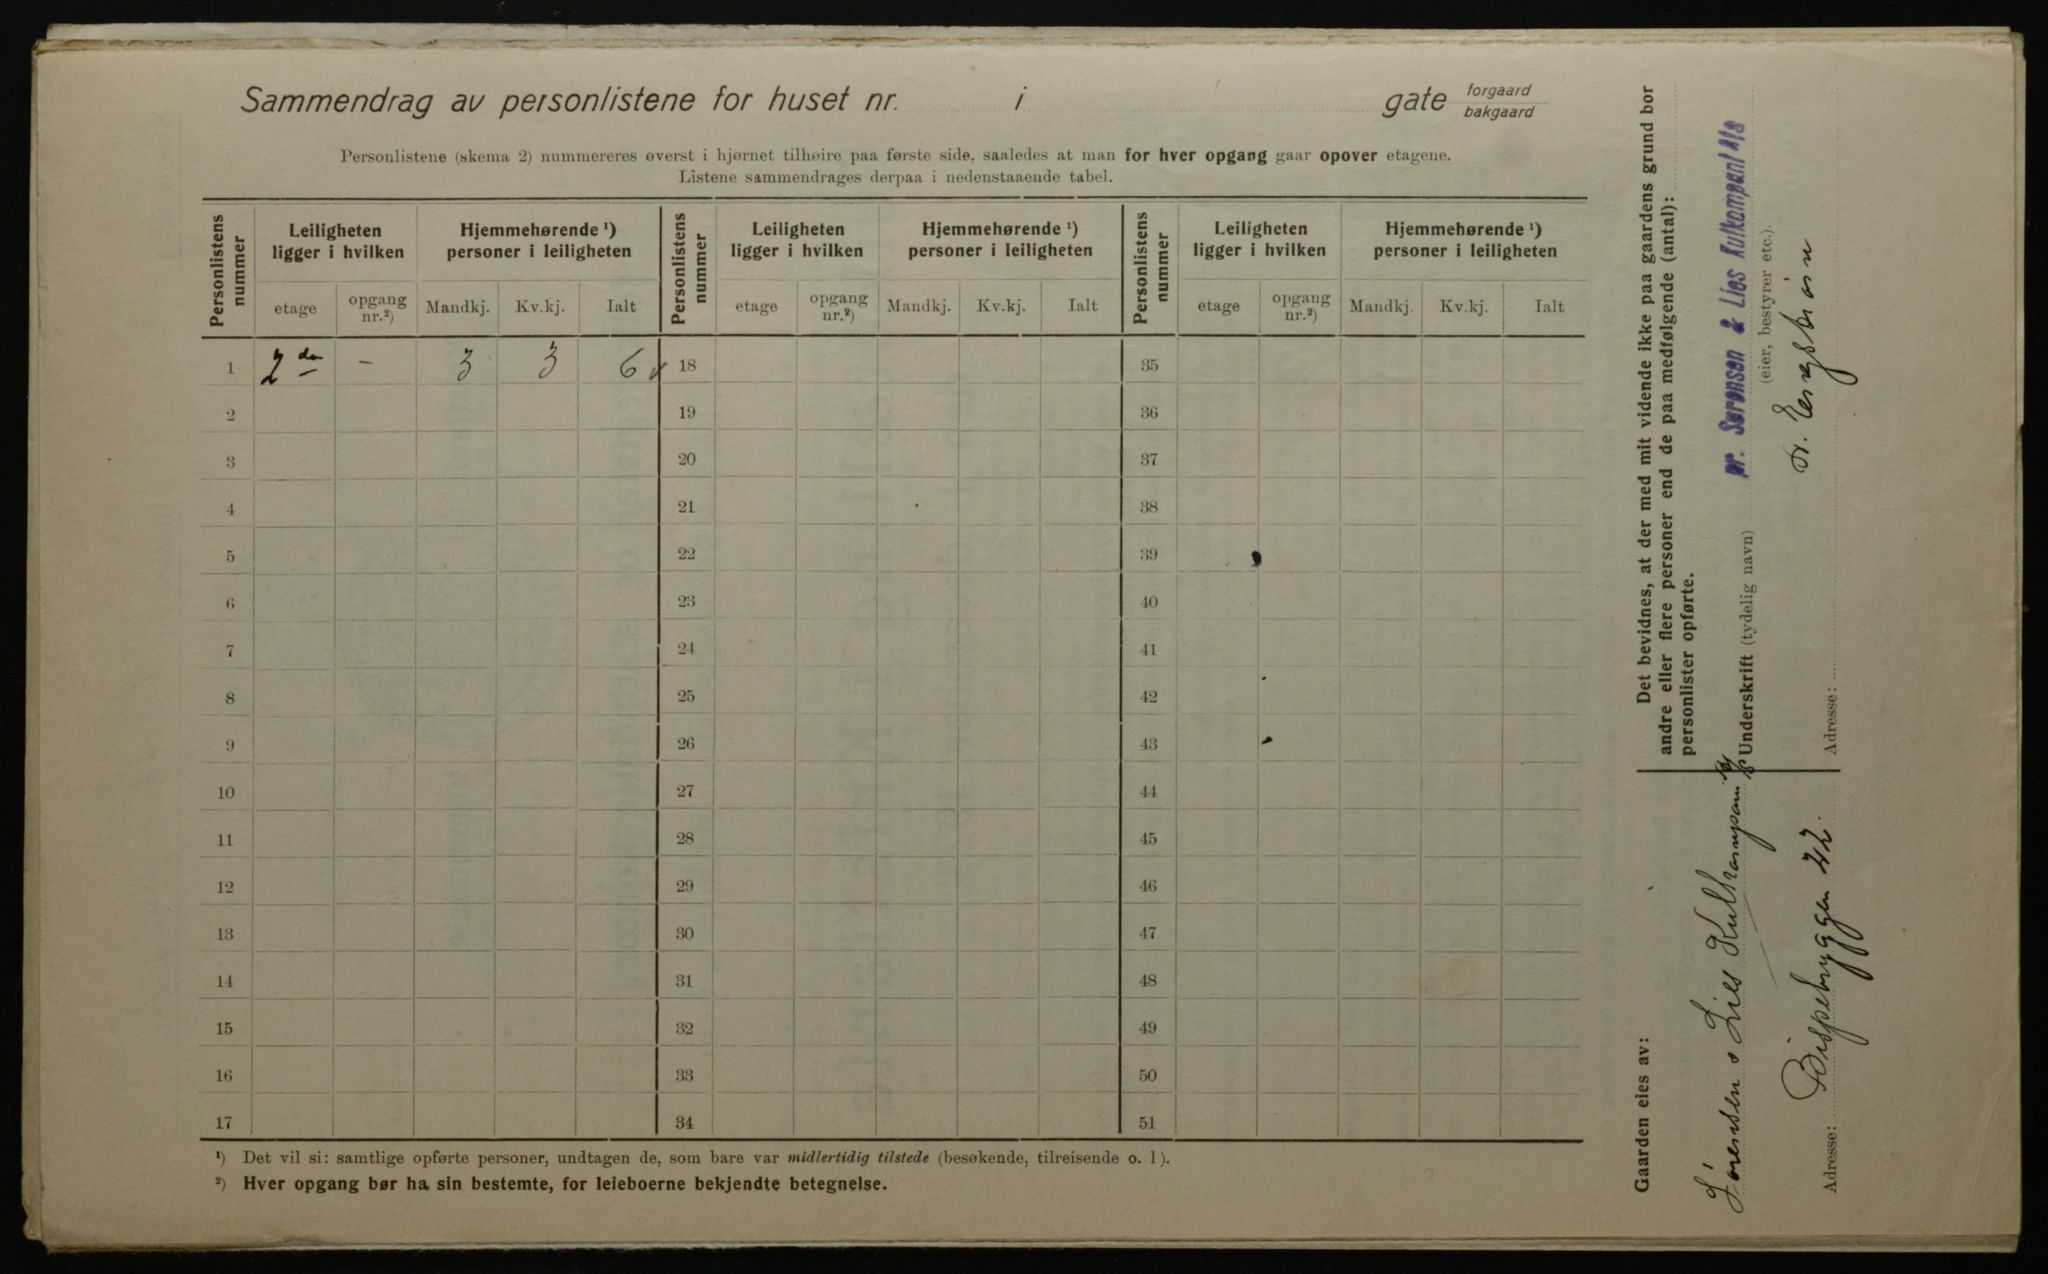 Sammendrag av personlistene for huset nr. i gate forgaard bakgaard
Personlistene (skema 2) nummereres øverst i hjørnet tilhøire paa første side, saaledes at man for hver opgang gaar opover etagene.
Listene sammendrages derpaa i nedenstaaende tabel.
Personlistens nummer
Leiligheten ligger i hvilken
Hjemmehørende ¹) personer i leiligheten
Personlistens nummer
Leiligheten ligger i hvilken
Hjemmehørende ¹) personer i leiligheten
Personlistens nummer
Leiligheten ligger i hvilken
Hjemmehørende ¹) personer i leiligheten
etage opgang nr.²) Mandkj. Kv.kj. Ialt etage opgang nr.²) Mandkj. Kv.kj. Ialt etage opgang nr.²) Mandkj. Kv.kj. Ialt
1 2den - 3 3 6 18 35
2 19 36
3 20 37
4 21 38
5 22 39
6 23 40
7 24 41
8 25 42
9 26 43
10 27 44
11 28 45
12 29 46
13 30 47
14 31 48
15 32 49
16 33 50
17 34 51
¹) Det vil si: samtlige opførte personer, undtagen de, som bare var midlertidig tilstede (besøkende, tilreisende o. l).
²) Hver opgang bør ha sin bestemte, for leieboerne bekjendte betegnelse.
Gaarden eies av:
Sørensen & Lies Kulkompani A/S
Adresse: Bispebryggen
Det bevidnes, at der med mit vidende ikke paa gaardens grund bor
andre eller flere personer end de paa medfølgende (antal):
personlister opførte.
pr. Sørensen & Lies Kulkompani A/s
Underskrift (tydelig navn)
(eier, bestyrer etc.).
Adresse: